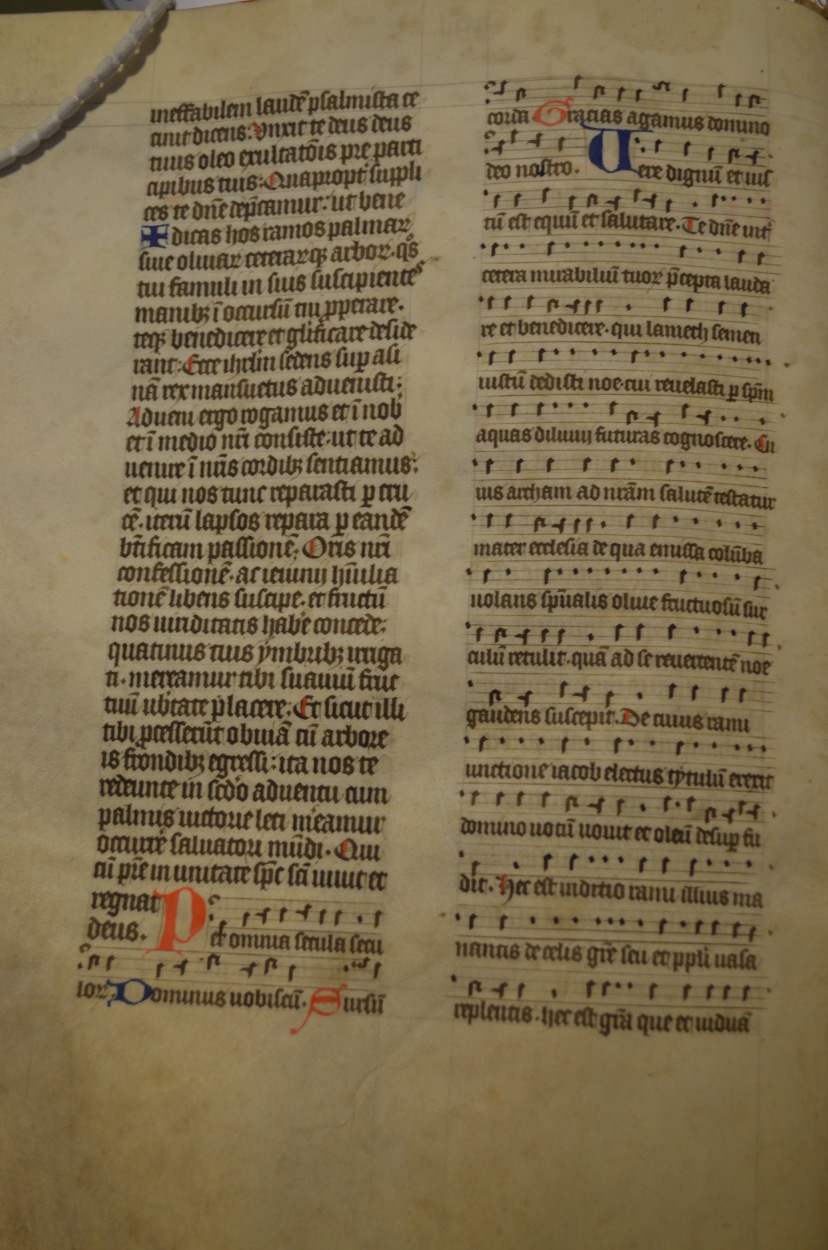 ineffabilem laudē psalmista ce
cinit dicens: Vnxit te deus deus
tuus oleo exultatōis pre parti
cipibus tuis: Quapropt' suppli
ces te dn̄e dep̄camur: ut bene
✠ dicas hos ramos palmar̄
siue oliuar ceterarꝗ arbor. qs̄
tui famuli in suis suscipientes
manibꝫ ī occursū tui ꝓperare.
teqꝫ benedicere et gl̄ificare deside
rant: Ecce ihrl̄m sedens suꝑ asi
nā rex mansuetus aduenisti:
Adueni ergo rogamus et ī nob
et ī medio nr̄i consiste: ut te ad
uenire ī nr̄is cordibꝫ sentiamus:
et qui nos tunc reparasti ꝑ cru
cē. iterū lapsos repara ꝑ eandē
bt̄ificam passionē: Oris nr̄i
confessionē. ac ieiunij hūilia
tionē libens suscipe. et fructū
nos uiriditatis hab'e concede:
quatinus tuis ymbribꝫ irriga
ti. mereamur tibi suauiū fruc
tuū ub̄tate placere: Et sicut illi
tibi ꝓcesserūt obuiā cū arbore
is frondibꝫ egressi: ita nos te
redeunte in sc̄do aduentu cum
palmis uictorie leti m'eamur
occurre' saluatori mūdi. Qui
cū pr̄e in unitate sp̄c sc̄i uiuit et
regnat
deus. Per omnia secula secu
lor̄. Dominus uobiscū. Sursū
corda Gracias agamus domino
deo nostro. Vere dignū et ius
tū est equū et salutare. Te dn̄e int'
cetera mirabiliū tuor p̄cepta lauda
re et benedicere. qui lamech semen
iustū dedisti noe. cui reuelasti ꝑ sp̄m
aquas diluuij futuras cognoscere. Cu
ius archam ad nr̄am salutē testatur
mater ecclesia de qua emissa colūba
uolans sp̄ualis oliue fructuosū sur
culū retulit. quā ad se reuertentē noe
gaudens suscepit. De cuius rami
unctione iacob electus tytulū erexit
domino uotū uouit et oleū desuꝑ fu
dit. Hec est inditio rami illius ma
nantis de celis gr̄e seu et ppl̄i uasa
replentis. hec est gr̄a que et uiduā